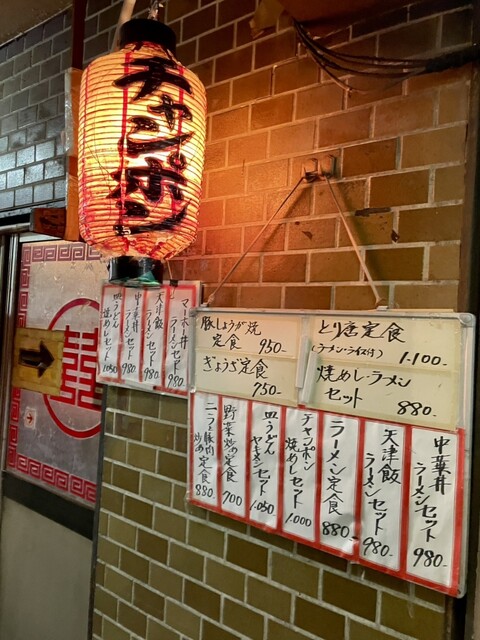 チャンポン
豚しょうが焼
定食 950-
ぎょうざ定食
750-
とり唐定食
(ラーメン・ライス付)
1.100-
焼めし・ラーメン
セット
880-
中華丼
ラーメンセット
980-
天津飯
ラーメンセット
980-
ラーメン定食
880-
チャンポン
焼めしセット
1.000
皿うどん
ヤキメシセット
1.050
野菜炒め定食
700
ニラ豚肉
炒め定食
880-
マーボー丼
ラーメンセット
980-
天津飯
ラーメンセット
980
中華丼
ラーメンセット
980
皿うどん
焼めしセット
1050
囍